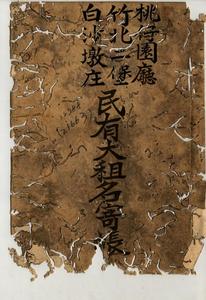 桃仔園廳
竹北二堡
白沙墩庄
民有大租名寄帳